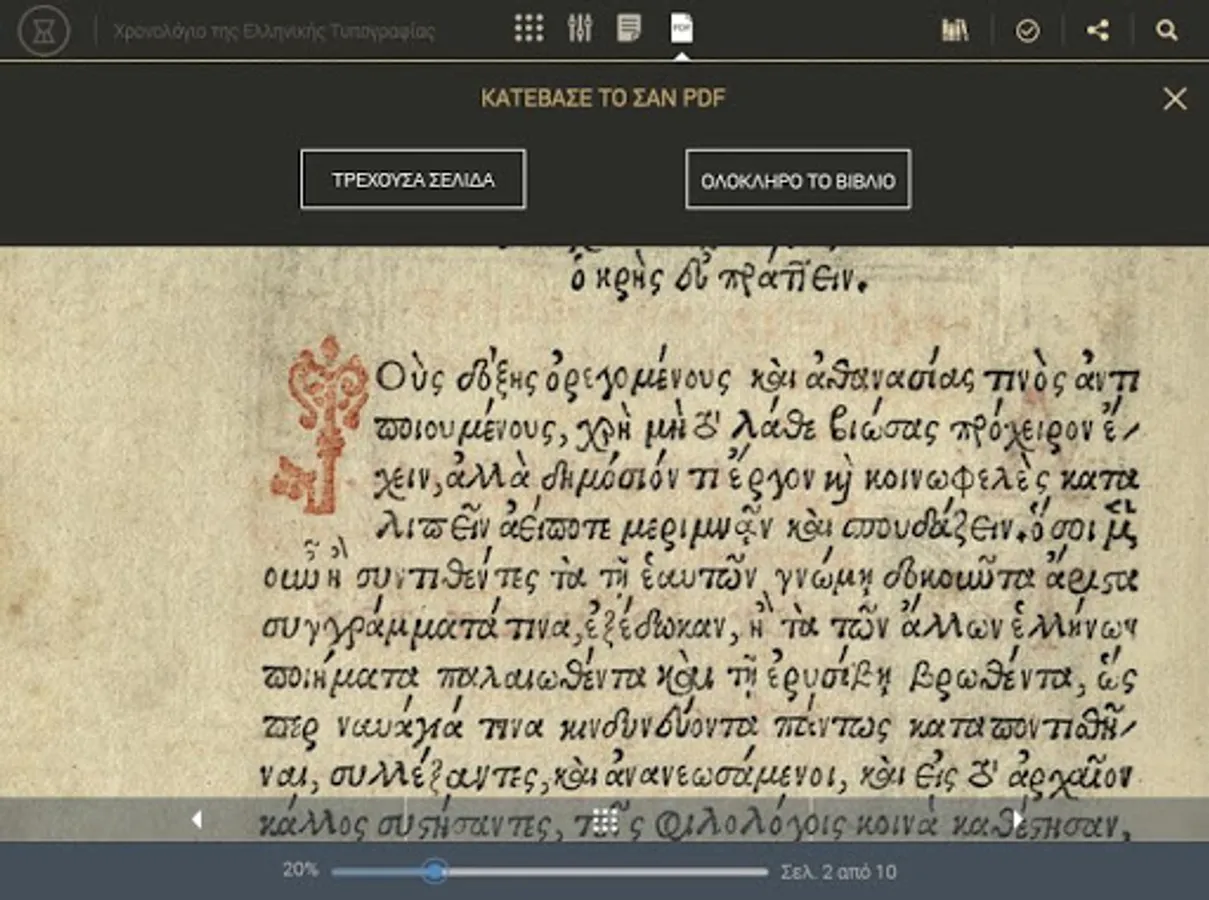 Χρονολόγιο της Ελληνικής Τυπογραφίας
PDF
ΚΑΤΕΒΑΣΕ ΤΟ ΣΑΝ PDF
ΤΡΕΧΟΥΣΑ ΣΕΛΙΔΑ
ΟΛΟΚΛΗΡΟ ΤΟ ΒΙΒΛΙΟ
ὁ κρὴς εὖ πράττειν.
Οὺς δόξης ὀρεγομένους καὶ ἀθανασίας τινὸς ἀντι
ποιουμένους, χρὴ μὴ τὸ λάθε βιώσας πρόχειρον ἔ/
χειν, ἀλλὰ δημόσιόν τι ἔργον καὶ κοινωφελὲς κατα
λιπεῖν ἀείποτε μεριμνᾶν καὶ σπουδάζειν. ὅσοι μὲν
οὖν ἢ συντιθέντες τὰ τῇ ἑαυτῶν γνώμῃ δοκοῦντα ἄριστα
συγγράμματά τινα, ἐξέδωκαν, ἢ τὰ τῶν ἄλλων ἑλλήνων
ποιήματα παλαιωθέντα καὶ τῇ ἐρυσίβῃ βρωθέντα, ὥς
περ ναυάγιά τινα κινδυνεύοντα πάντως καταποντισθῆ/
ναι, συλλέξαντες, καὶ ἀνανεωσάμενοι, καὶ εἰς τὸ ἀρχαῖον
κάλλος συστήσαντες, τοῖς φιλολόγοις κοινὰ καθέστησαν,
20%
Σελ. 2 από 10